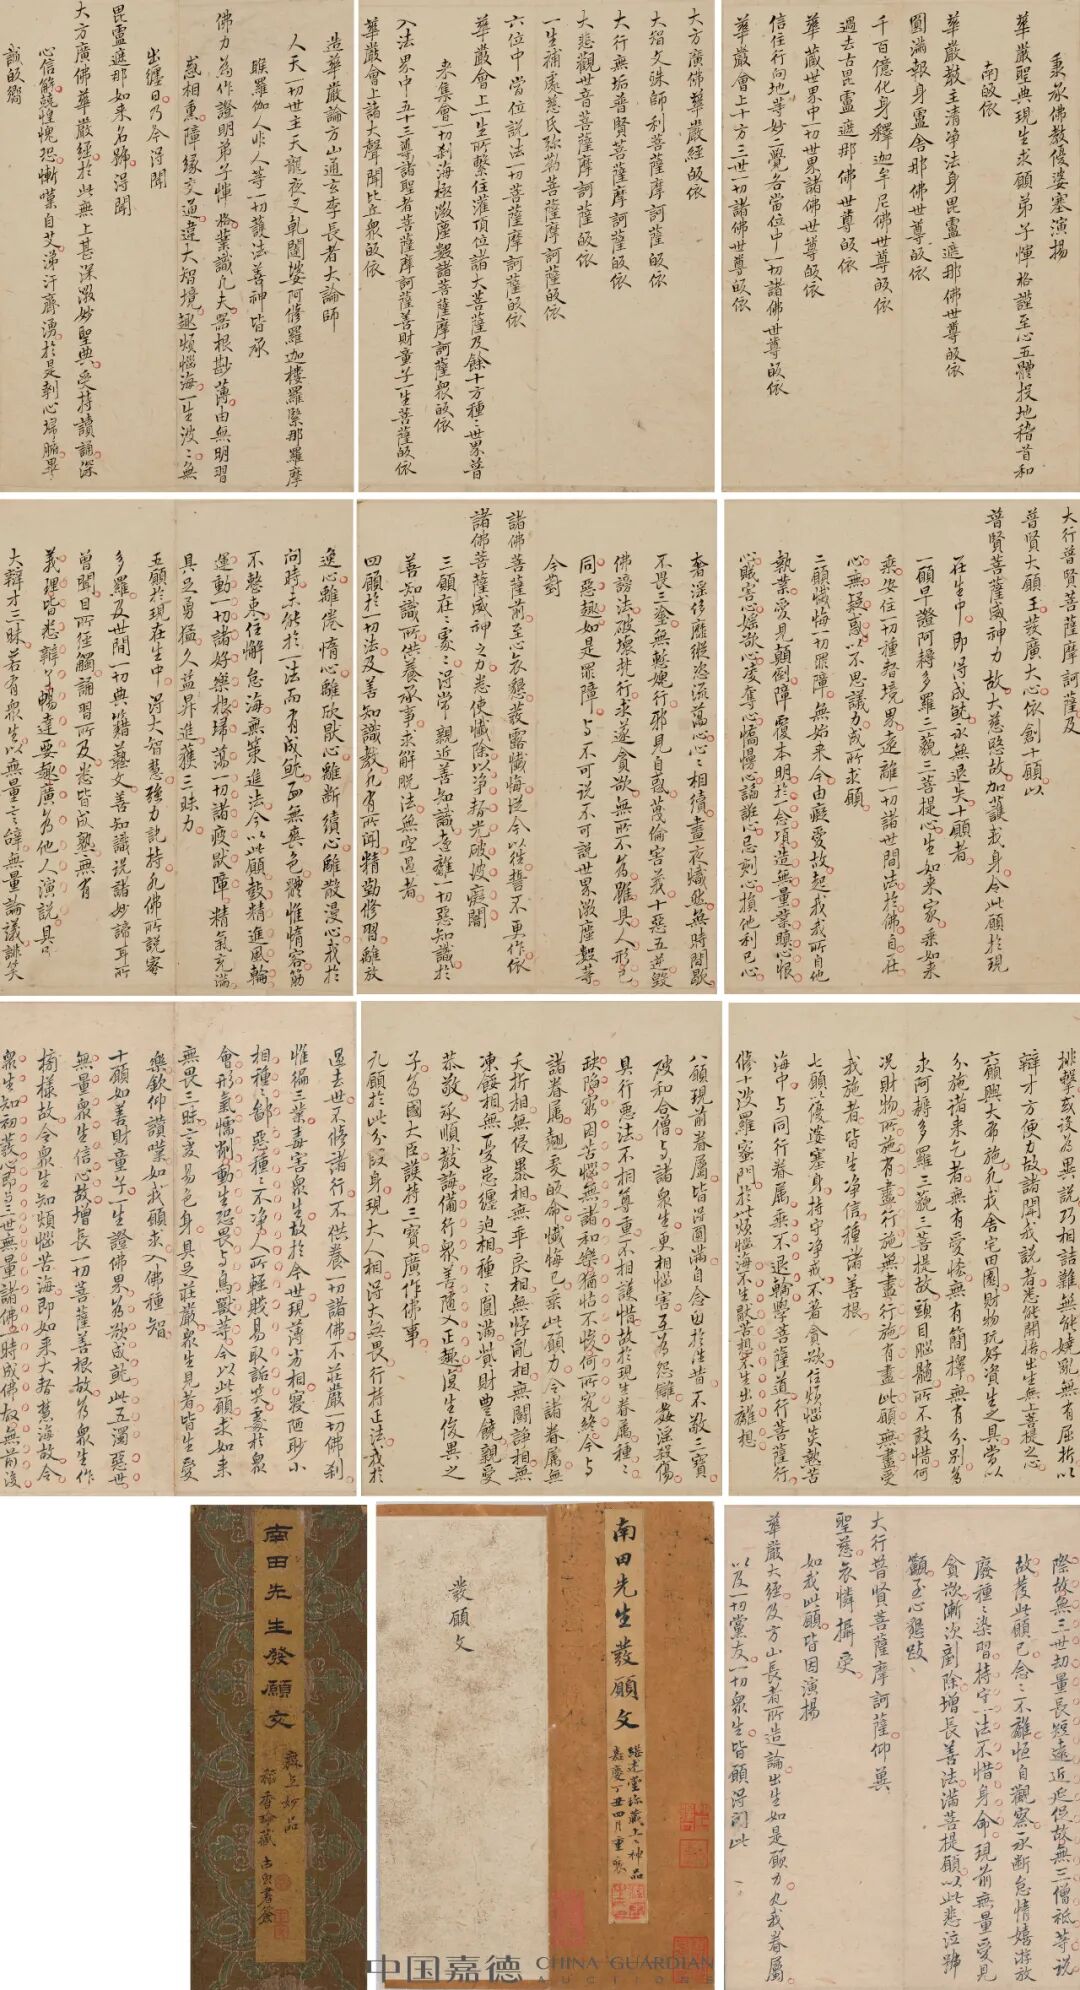 秉承佛教優婆塞演揚
華嚴聖典現生求願弟子惲格謹至心五體投地稽首和
南皈依
華嚴教主清淨法身毘盧遮那佛世尊皈依
圓滿報身盧舍那佛世尊皈依
千百億化身釋迦牟尼佛世尊皈依
過去古毘盧遮那佛世尊皈依
華藏世界中一切世界諸佛世尊皈依
信住行向地等妙二覺各當位中一切諸佛世尊皈依
華嚴會上十方三世一切諸佛世尊皈依
大方廣佛華嚴經皈依
大智文殊師利菩薩摩訶薩皈依
大行無垢普賢菩薩摩訶薩皈依
大悲觀世音菩薩摩訶薩皈依
一生補處慈氏弥勒菩薩摩訶薩皈依
六位中當位說法一切菩薩摩訶薩皈依
華嚴會上一生所繫住灌頂位諸大菩薩及餘十方種〻世界普
來集會一切刹海極微塵數諸菩薩摩訶薩衆皈依
入法界中五十三尊諸聖者菩薩摩訶薩善財童子一生菩薩皈依
華嚴會上諸大聲聞比丘衆皈依
造華嚴論方山通玄李長者大論師
人天一切世主天龍夜叉乹闥婆阿修羅迦樓羅緊那羅摩
睺羅伽人非人等一切護法善神皆承
佛力為作證明弟子惲格業識凡夫器根尠薄由無明習
惑相熏障緣交遘違大智境趣煩惱海一生波〻無
出纏日乃今得聞
毘盧遮那如来名號得聞
大方廣佛華嚴經於此無上甚深微妙聖典受持讀誦深
心信解驍愧恐慚嘆自艾涕汗齊湧於是剖心掃腑畢
誠皈嚮
大行普賢菩薩摩訶薩及
普賢大願王發廣大心依創十願以
普賢菩薩威神力故大慈愍故加護我身令此願於現
在生中即得成就永無退失十願者
一願早證阿耨多羅三藐三菩提心生如来家乘如来
乘安住一切種智境界遠離一切諸世間法於佛自在
心無疑惑以不思議力成所求願
二願懺悔一切罪障無始来今由癡愛故起我我所自他
執業愛見顛倒障覆本明於一念項造無量業瞋心恨
心賊害心婬欲心凌奪心憍慢心謟誑心忌刻心損他利已心
奢淫侈靡縱恣流蕩心心相續晝夜熾然無時間歇
不畏三塗無慙媿行邪見自惑蔑倫害義十惡五逆毀
佛謗法破壞梵行求遂貪欲無所不為雖具人形已
同惡趣如是罪障与不可說不可說世界微塵數等
今對
諸佛菩薩前至心哀懇發露懺悔從今以往誓不更作依
諸佛菩薩威神之力悉使懺除以淨智光破彼癡闇
三願在〻處〻得常親近善知識遠離一切惡知識於
善知識所供養承事求解脫法無空過者
四願於一切法及善知識教凡有所聞精勤修習離放
逸心離倦惰心離欣猒心離斷續心離散漫心我於
問時未能於一法而有成就面無爽色體惟惰容筋
不整束住懈怠海無策進法今以此願鼓精進風輪
運動一切諸好樂根掃蕩一切諸疲猒障精氣充滿
具足勇猛久益昇進獲三昧力
五願於現在生中得大智慧強力記持凡佛所說密
多羅及世間一切典籍藝文善知識說諸妙諦耳所
曾聞目所經觸誦習所及悉皆成熟無有
義理皆悉辯了暢達要趣廣為他人演說具
大辯才三昧若有衆生以無量言辞無量論議誹笑
排擊或設為異說巧相詰難無能嬈亂無有屈折以
辯才方便力故諸聞我說者悉能開悟出生無上菩提之心
六願興大布施凡我舍宅田園財物玩好資生之具常以
分施諸来乞者無有愛悋無有簡擇無有分别為
求阿耨多羅三藐三菩提故頭目腦髓所不敢惜何
况財物所施有盡行施無盡行施有盡此願無盡受
我施者皆生净信種諸善根
七願以優婆塞身持守净戒不著貪欲住煩惱炎熱苦
海中与同行眷属乘不退輪學菩薩道行菩薩行
修十波羅蜜門於此煩惱海不生猒苦想不生出離想
八願現前眷属皆得圓滿自念由於往昔不敬三寶
破和合僧与諸衆生更相惱害互為怨讎姦淫殺傷
具行惡法不相尊重不相護惜故於現生眷属種〻
缺陷窮困苦惱無諸和樂猶怙不悛何所究終今与
諸眷属翹爰皈命懺悔已乘此願力令諸眷属無
夭折相無侵暴相無乖戾相無悖亂相無鬭諍相無
凍餒相無憂患纏迫相種〻圓滿貲財豊饒親愛
恭敬承順教誨備行衆善隨入正趣復生俊異之
子為國大臣護持三寶廣作佛事
九願於此分段身現大人相得大無畏行持正法我於
過去世不修諸行不供養一切諸佛不莊嚴一切佛刹
惟徧三業毒害衆生故於今世現薄劣相寢陋眇小
相種〻鄙惡種〻不净人所輕賤易取詬笑處於衆
會形氣懦劣動生恐畏与鳥獸等今以此願求如来
無畏三昧變易色身具足莊嚴衆生見者皆生愛
樂欽仰讃嘆如我願求入佛種智
十願如善財童子一生證佛果為欲成就此五濁惡世
無量衆生信心故增長一切菩薩善根故為衆生作
榜樣故令衆生知煩惱苦海即如来大智慧海故令
衆生知初發心即与三世無量諸佛一時成佛故無前後
際故無三世劫量長短遠近延促故無三僧祇等說
故發此願已念〻不離恒自觀察永断怠惰嬉游放
廢種〻染習持守一法不惜身命現前無量愛見
貪欲漸次剷除增長善法滿菩提願以此悲泣號
顲至心懇敂
大行普賢菩薩摩訶薩仰冀
聖慈哀憐攝受
如我此願皆因演揚
華嚴大經及方山長者所造論出生如是願力凡我眷属
以及一切黨友一切衆生皆願得聞此
南田先生發願文
繼述堂珍藏上上神品
嘉慶丁丑四月重裝
發願文
南田先生發願文
無上妙品
稻香珍藏
古奧書籤
中国嘉德 CHINA GUARDIAN
AUCTIONS